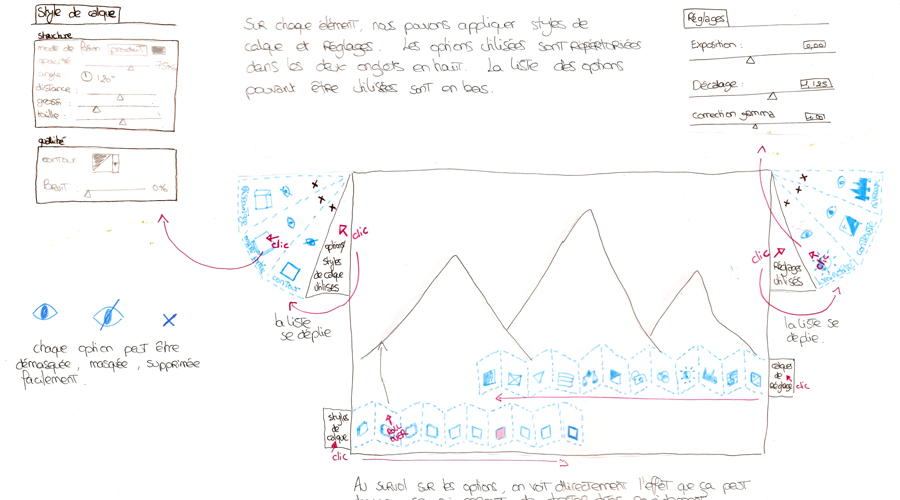 Style de calque
structure
mode de fusion produit
opacité 75%
angle 120°
distance :
grossi :
taille :
qualité
contour
Bruit : 0%
Sur chaque élément, nous pouvons appliquer styles de
calque et Réglages. Les options utilisées sont répertoriées
dans les deux onglets en haut. La liste des options
pouvant être utilisées sont en bas.
Réglages
Exposition : 0,00
Décalage :
correction gamma
clic
contour
options/
styles
de calque
utilisés
clic
la liste
se déplie
clic
Réglages
utilisés
clic
la liste se
déplie.
chaque option peut être
démasquée, masquée, supprimée
facilement.
calques
de
Réglage
clic
styles
de
calque
clic
ROLL
OVER
Au survol sur les options, on voit directement l'effet que ça peut